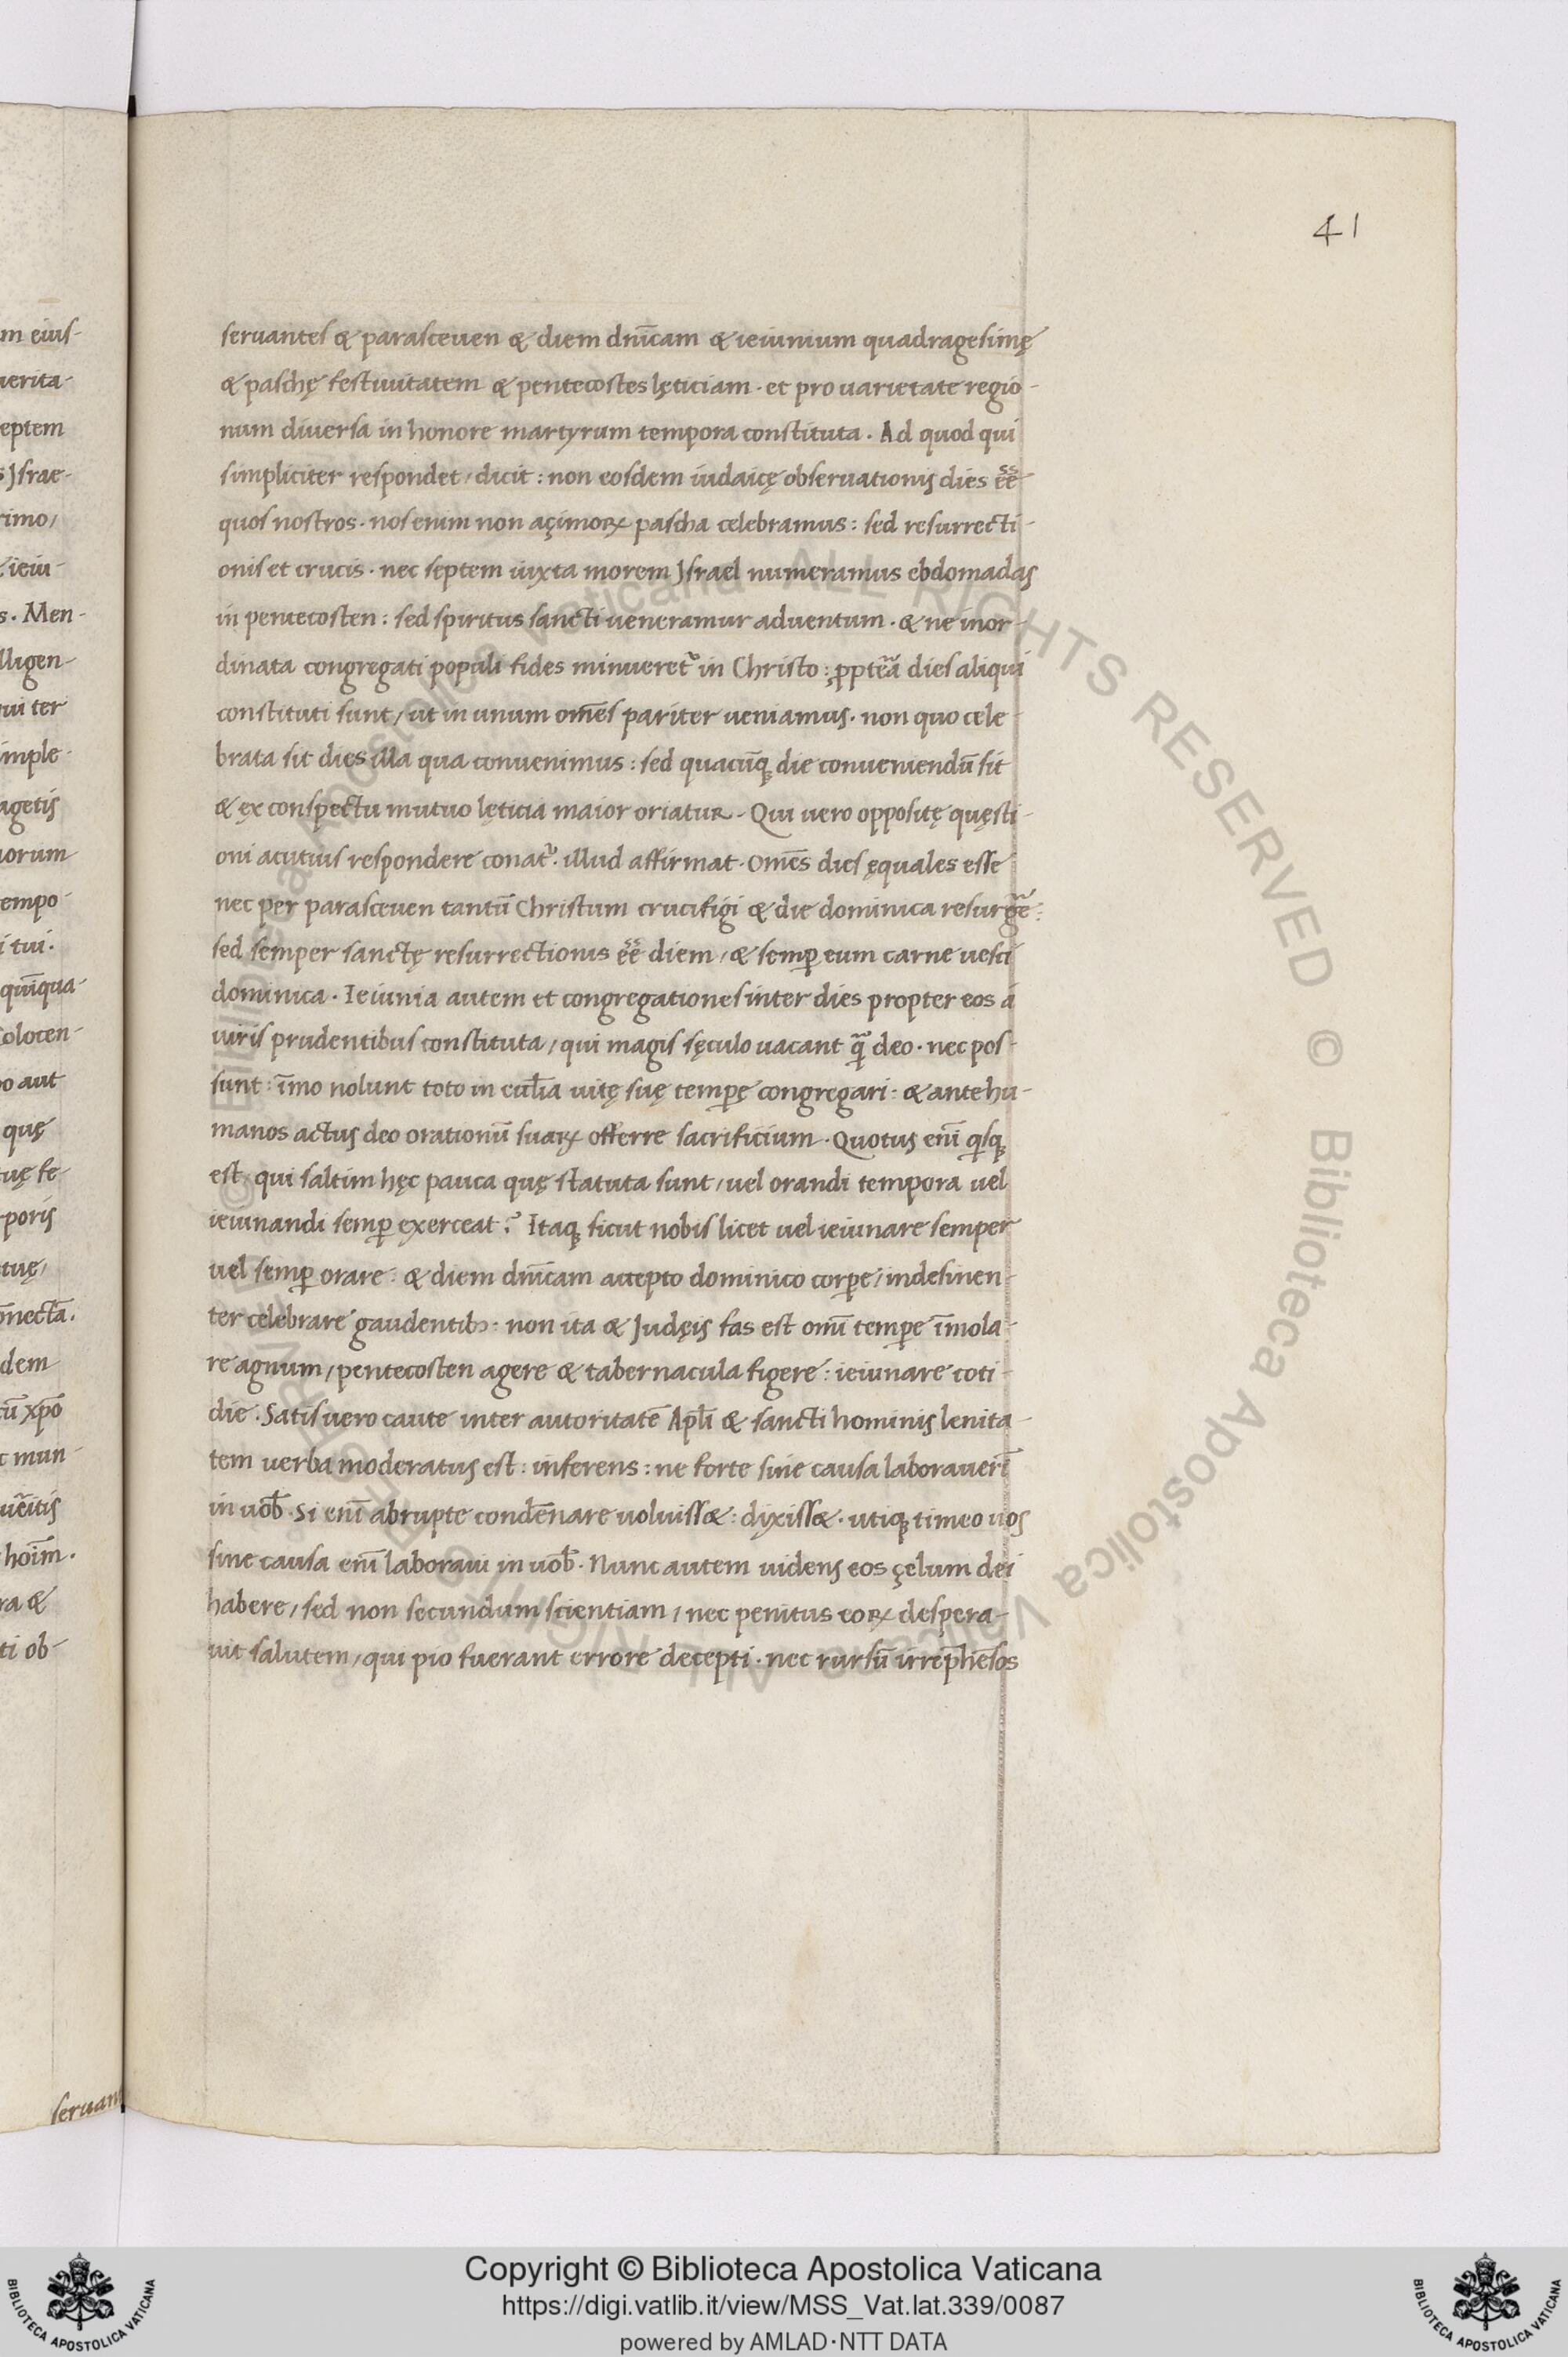 41
m eius-
uerita-
septem
s Jsrae-
rimo/
ieiu-
s. Men-
lligen-
ui ter
imple-
agetis
uorum
tempo-
i tui.
quīqua-
solocen-
o aut
quę
tuę fe-
rporis
tuę/
dem
xp̄o
mun-
hoīm.
ra &
ti ob-
seruan
seruantes & parasceuen & diem dnīcam & ieiunium quadragesimę
& paschę festiuitatem & pentecostes lęticiam. et pro uarietate regio-
num diuersa in honore martyrum tempora constituta. Ad quod qui
simpliciter respondet/ dicit: non eosdem iudaicę obseruationis dies ēē
quos nostros. nos enim non açimoꝝ pascha celebramus: sed resurrecti-
onis et crucis. nec septem iuxta morem Jsrael numeramus ebdomadas
in pentecosten: sed spiritus sancti ueneramur aduentum. & ne inor-
dinata congregati populi fides minueret᷑ in Christo: ꝓpteā dies aliqui
constituti sunt/ ut in unum om̄es pariter ueniamus. non quo cele-
brata sit dies illa qua conuenimus: sed quacūqꝫ die conueniendū sit
& ęx conspectu mutuo lęticia maior oriatur. Qui uero oppositę quęsti-
oni acutius respondere conat᷑. illud affirmat. Om̄es dies ęquales esse
nec per parasceuen tantū Christum crucifigi & die dominica resurgē̄:
sed semper sanctę resurrectionis ēē diem/ & semꝑ eum carne uesci
dominica. Ieiunia autem et congregationes inter dies propter eos á
uiris prudentibus constituta/ qui magis sęculo uacant q̄ deo. nec pos-
sunt: īmo nolunt toto in ecl̄ia uitę suę temꝑę congregari: & ante hu-
manos actus deo orationū suaꝝ offerre sacrificium. Quotus enī qsqꝫ
est/ qui saltim hęc pauca quę statuta sunt/ uel orandi tempora uel
ieiunandi semꝑ exerceat? Itaqꝫ sicut nobis licet uel ieiunare semper
uel semꝑ orare: & diem dnīcam accepto dominico corꝑe/ indesinen-
ter celebrare gaudentibꝫ: non ita & Judęis fas est omī temꝑe īmola-
re agnum/ pentecosten agere & tabernacula figere: ieiunare coti-
die. Satis uero caute inter autoritatē Apl̄i & sancti hominis lenita-
tem uerba moderatus est: inferens: ne forte sine causa laborauerī
in uob̄. Si enī abrupte condēnare uoluiss&: dixiss&. utiqꝫ timeo uos
sine causa enī laboraui in uob̄. Nunc autem uidens eos çelum dei
habere/ sed non secundum scientiam/ nec penitus eoꝝ despera-
uit salutem/ qui pio fuerant errore decepti. nec rursū irrep̄hēsos
© Biblioteca Apostolica Vaticana ALL RIGHTS RESERVED © Biblioteca Apostolica Vaticana ALL RIGHTS RESERVED
Copyright © Biblioteca Apostolica Vaticana
https://digi.vatlib.it/view/MSS_Vat.lat.339/0087
powered by AMLAD·NTT DATA
BIBLIOTECA APOSTOLICA VATICANA
BIBLIOTECA APOSTOLICA VATICANA